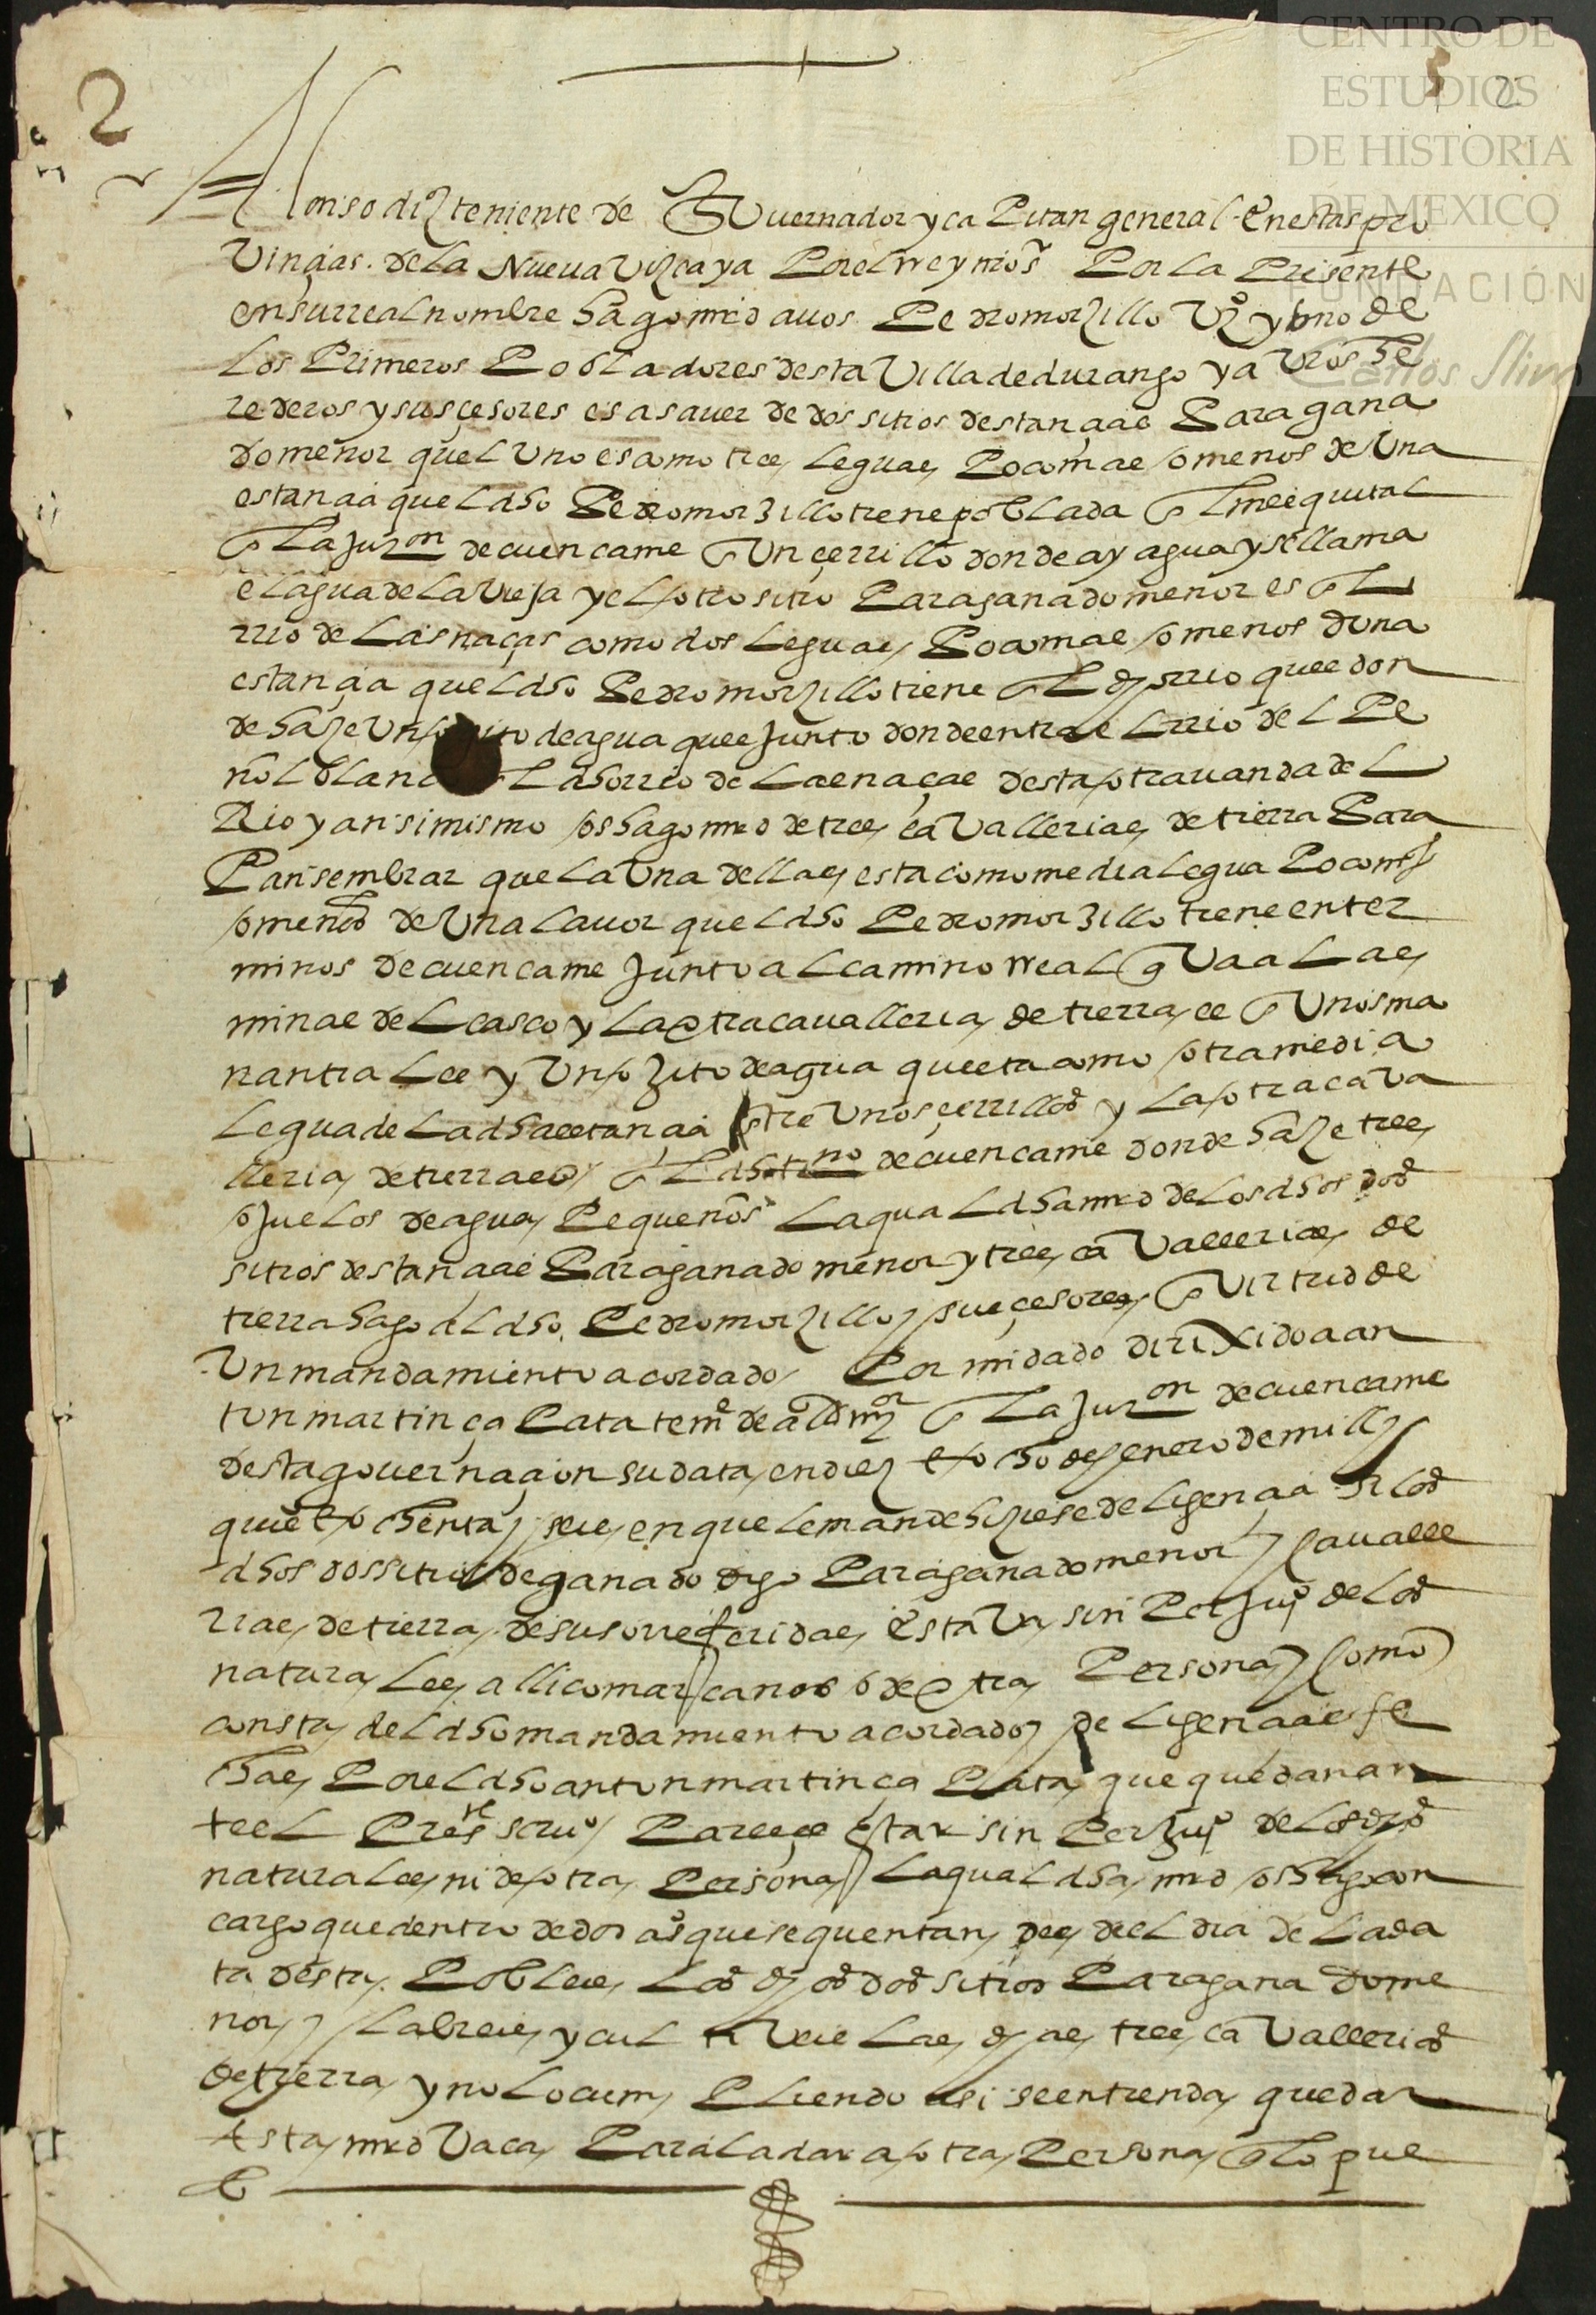 2
5 2
CENTRO DE
ESTUDIOS
DE HISTORIA
DE MEXICO
FUNDACIÓN
Carlos Slim
Alonso diz teniente de Guuernador y ca Pitan general En estas pro
Vinçias. de la Nueua Vizcaya Por el rrey nros^r Por la Presente
en su rreal nombre hago mrd a uos Pedro morzillo Vz^o y uno de
los Primeros Pobladores desta Villa de durango y a Vros he
rederos y susçesores es a sauer de dos sitios destançias Para gana
do menor quel Uno es como tres leguas Poco mas o menos de Una
estançia quel dho Pedro morzillo tiene poblada En el mesquital
En la jur^on de cuencame En Un çerrillo donde ay agua y se llama
el agua de la Vieja y el otro sitio Para ganado menor es En el
rrio de las naças como dos leguas Poco mas o menos duna
estançia quel dho Pedro morzillo tiene En el dho rrio ques don
de haze Un deagua ques junto donde entra el rrio del Pe
ñol blanco En el dho rrio de las naças desta otra uanda del
Rio y ansimismo os hago mrd de tres ca Vallerias de tierra Para
Pan sembrar que la Una dellas esta como media legua Poco mas
o menos de Una lauor quel dho Pedro morzillo tiene en ter
minos de cuencame junto al camino rreal q Va a las
minas del casco y la otra caualleria de tierra es En Unos ma
nantiales y Un ozito de agua questa como otra media
legua de la dha estançia Entre Unos çerrillos y la otra caVa
lleria de tierra es En el dho t^no de cuencame donde haze tres
ojuelos de agua Pequeños la qual dha mrd de los dhos dos
sitios destançias Para ganado menor y tres ca Vallerias de
tierra hago al dho Pedro morzillo y susçesores En Virtud de
Un mandamiento acordado Por mi dado dirixido a an
ton martin ça Pata ten^e de alld m^or En la jur^on de cuencame
desta gouernaçion su data en diez E ocho de enero de mill y
qui^os E ochenta y seis en que le mande hiziese deligençia si los
dhos dos sitios de ganado digo Para ganado menor y caualle
rias de tierra desuso rreferidas Estava sin Perjui^o de los
naturales alli comarcanos o de otra Persona y como
consta del dho mandamiento acordado y deligençias fe
chas Por el dho anton martin ça Pata que quedan an
te el Pres^te scriu^o Pareçe Estar sin Perjui^o de los dhos
naturales ni de otra Persona la qual dha mrd os hago con
cargo que dentro de dos a^os que se quentan desde el dia de la da
ta desta Pobleis los dhos dos sitios Para gana dome
nor y labreis y cul ti Veis las dhas tres ca Vallerias
de tierra y no lo cum Pliendo asi se entienda quedar
Esta mrd Vaca Para la dar a otra Persona En lo que